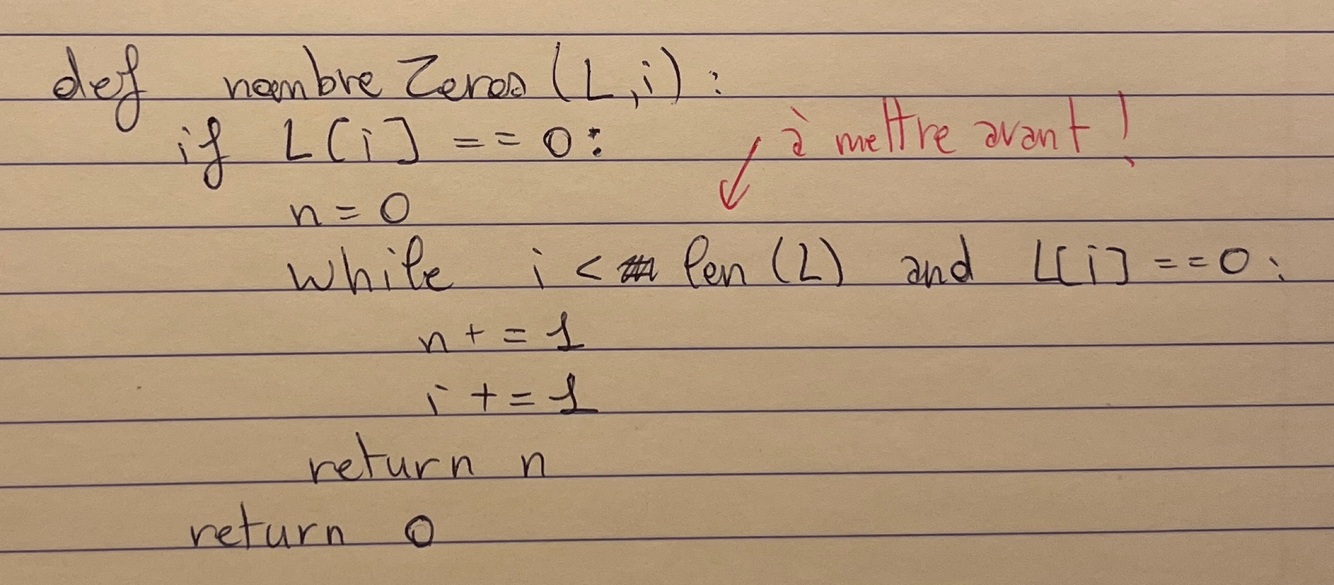 def nombreZeros(L,i):
if L[i] == 0:
à mettre avant !
n = 0
while i < len(L) and L[i] == 0:
n += 1
i += 1
return n
return 0